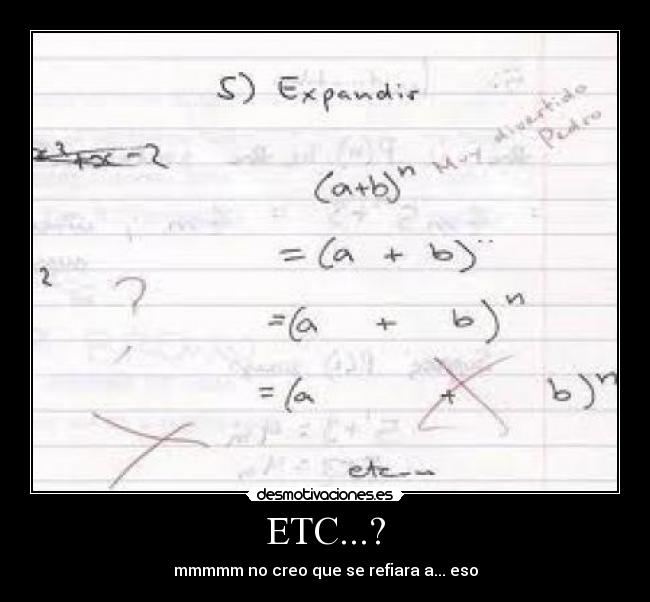 5) Expandir
Muy divertido
Pedro
x² +x - 2
(a+b)ⁿ
= (a + b)ⁿ
2
?
=(a + b)ⁿ
= (a + b)ⁿ
etc...
desmotivaciones.es
ETC...?
mmmmm no creo que se refiara a... eso